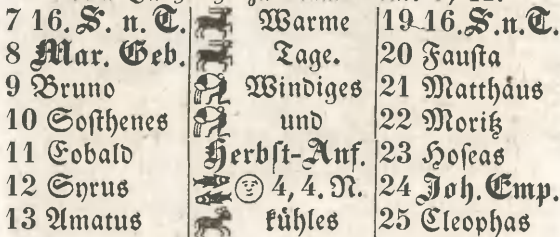 7 16. S. n. T. Warme 19 16. S. n. T.
8 Mar. Geb. Tage. 20 Fausta
9 Bruno Windiges 21 Matthäus
10 Sosthenes und 22 Moritz
11 Eobald Herbst-Anf. 23 Hoseas
12 Syrus 4, 4. N. 24 Joh. Emp.
13 Amatus kühles 25 Cleophas